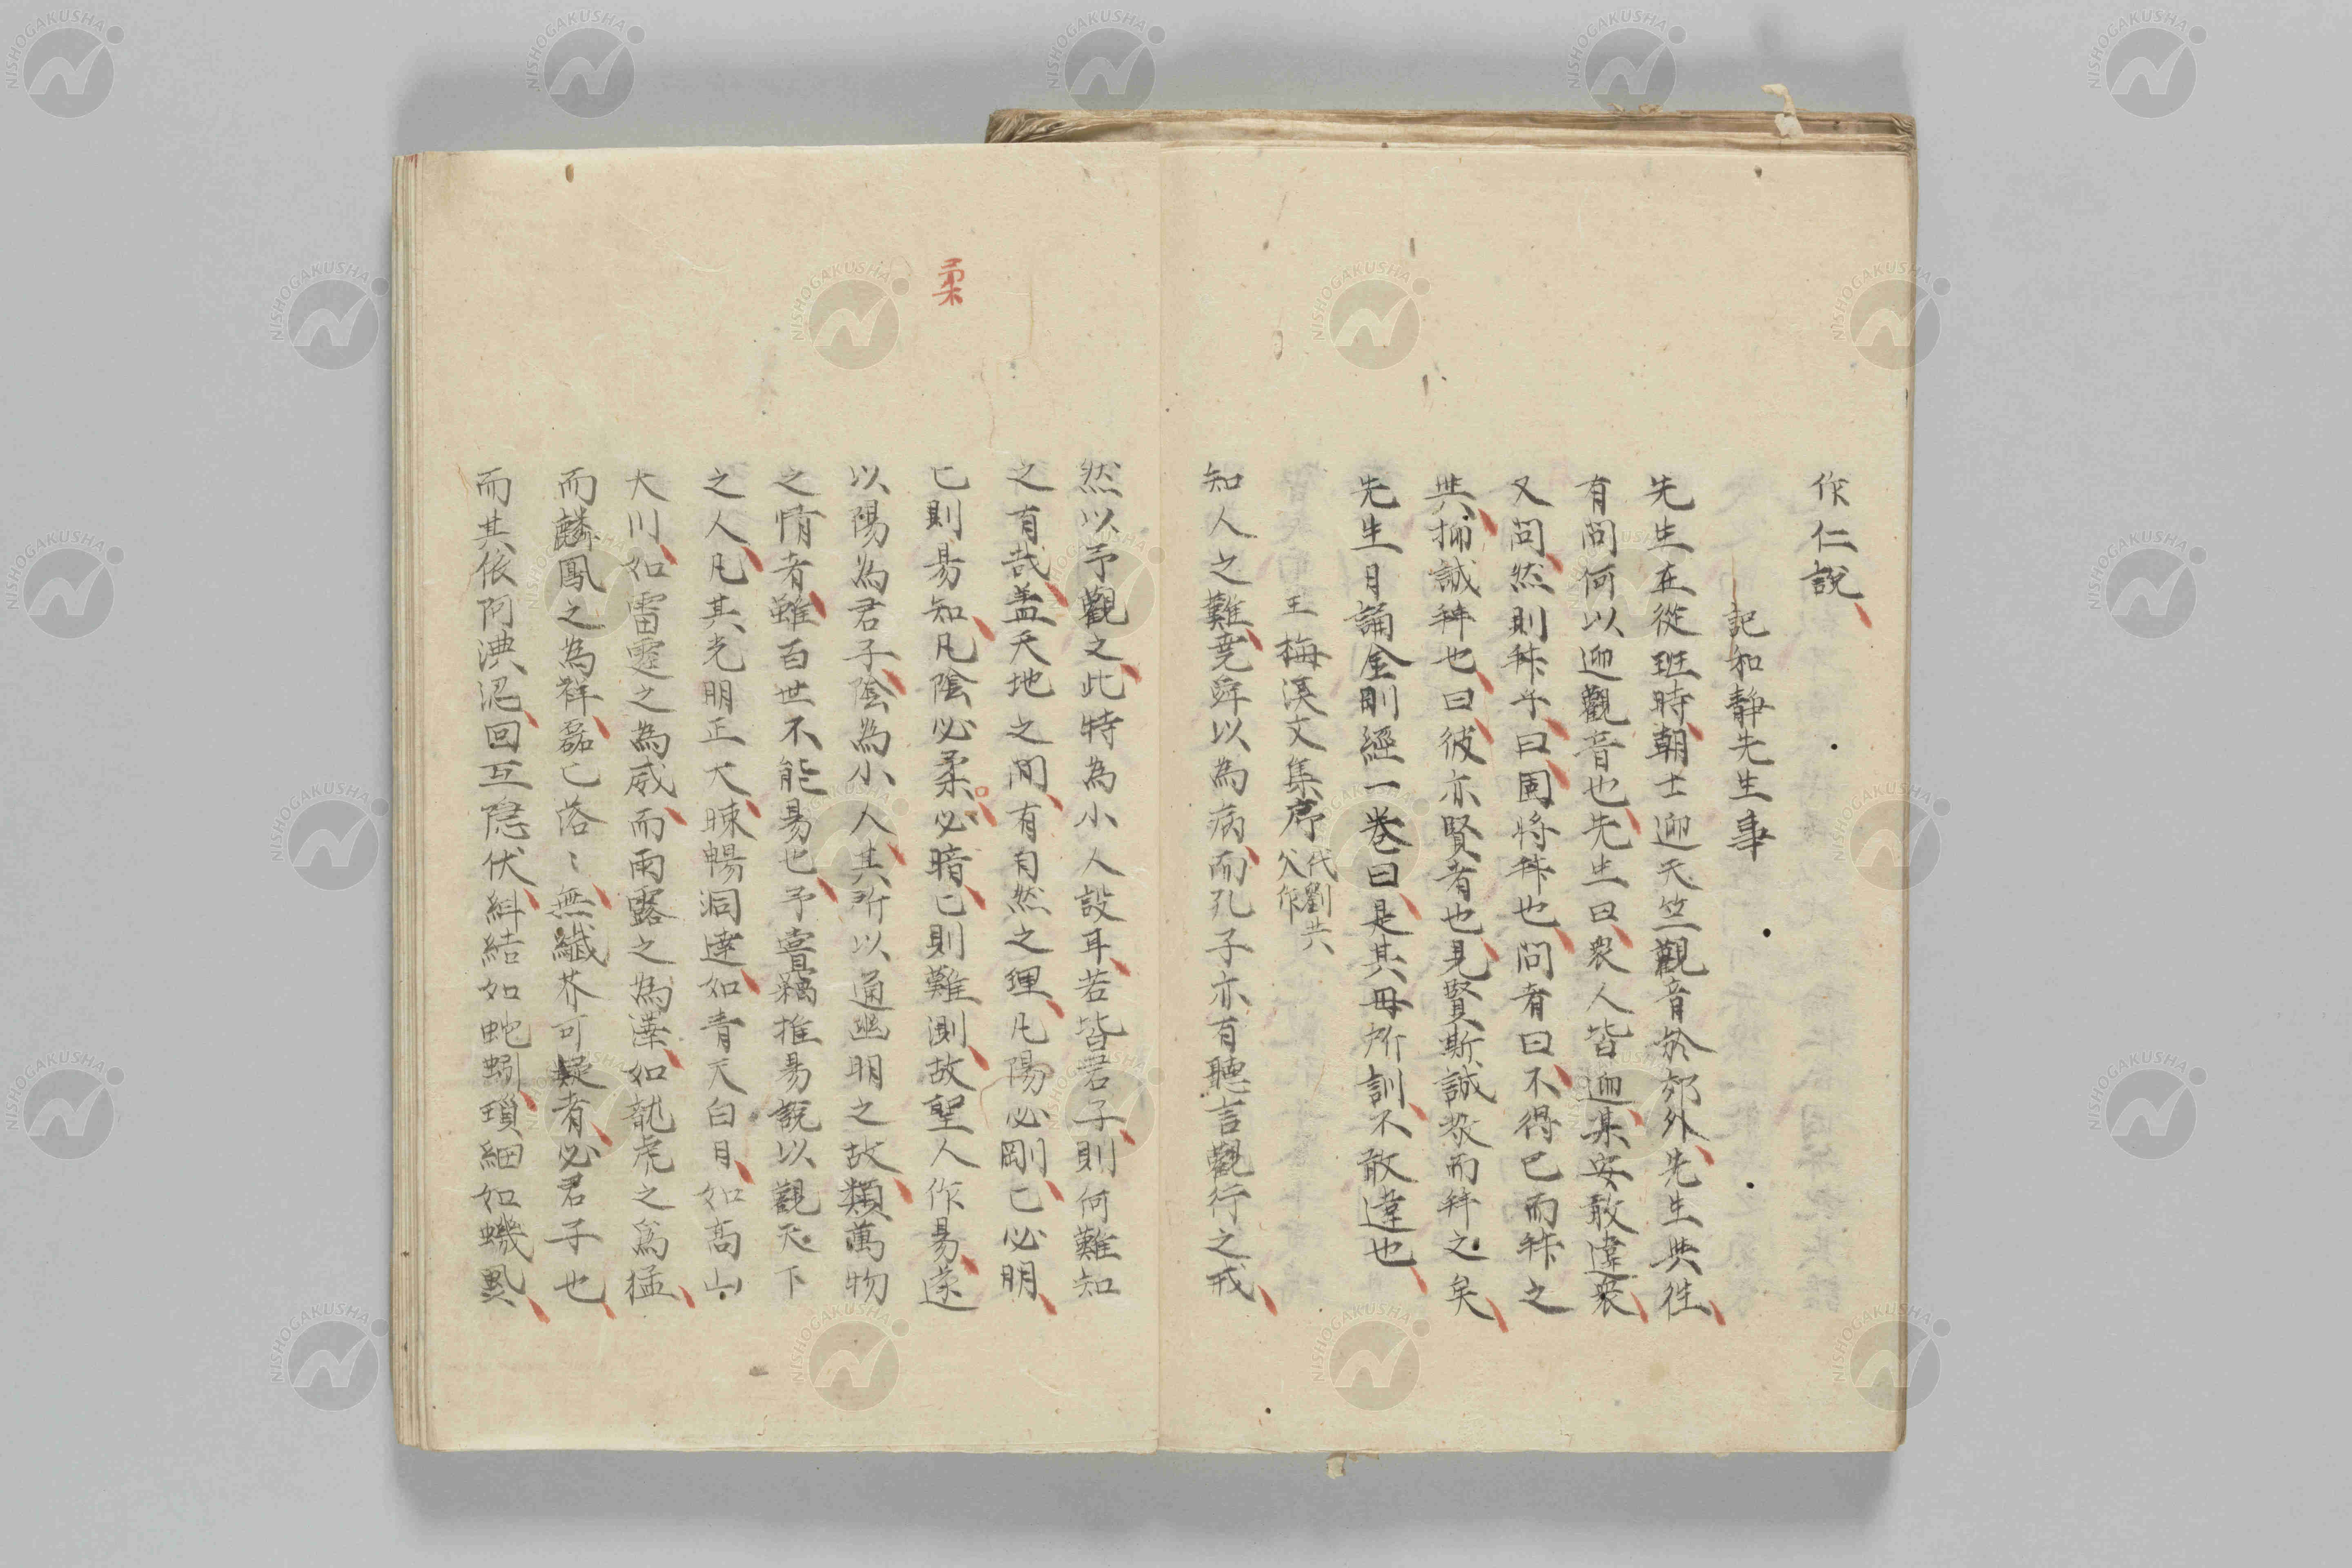 作仁說
記和靜先生事
先生在從班時朝士迎天竺觀音於郊外先生与往
有問何以迎觀音也先生曰衆人皆迎某安敢違衆
又問然則拜乎曰固將拜也問者曰不得已而拜之
与抑誠拜也曰彼亦賢者也見賢斯誠敬而拜之矣
先生日誦金剛經一卷曰是其母所訓不敢違也
王梅溪文集序代劉共父作
知人之難堯舜以為病而孔子亦有聽言觀行之戒
柔
然以予觀之此特為小人設耳若皆君子則何難知
之有哉盖天地之間有自然之理凡陽必剛已必明
已則易知凡陰必柔必暗已則難測故聖人作易遂
以陽為君子陰為小人其所以通幽明之故類萬物
之情者雖百世不能易也予嘗竊推易說以觀天下
之人凡其光明正大疎暢洞達如青天白日如髙山
大川如雷霆之為威而雨露之為澤如龍虎之為猛
而麟鳳之為祥磊已落〻無纎芥可疑者必君子也
而其依阿淟涊回互隠伏糾結如蛇蚓瑣細如蟣虱
NISHOGAKUSHA